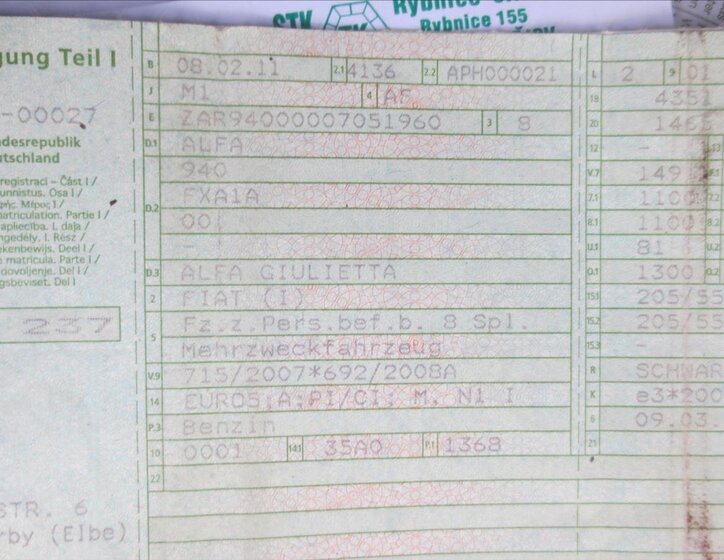 STK
Rybnice 155
gung Teil I
-00027
desrepublik
utschland
registraci – Část I /
unnistus. Osa I /
ής. Μέρος I /
matriculation. Partie I /
apliecība. I. daļa /
ngedély. I. Rész /
ekenbewijs. Deel I /
e matrícula. Parte I /
dovoljenje. Del I /
gsbeviset. Del I
237
STR. 6
rby (Elbe)
B 08.02.11 2.1 4136 2.2 APH000021
J M1 4 AF
E ZAR94000007051960 3 8
D.1 ALFA
940
D.2 FXA1A
00
-
D.3 ALFA GIULIETTA
2 FIAT (I)
5 Fz.z.Pers.bef.b. 8 Spl.
Mehrzweckfahrzeug
V.9 715/2007*692/2008A
14 EURO5;A;PI/CI; M, N1 I
P.3 Benzin
10 0001 14.1 35A0 P.1 1368
22
L 2 9 01
18 4351
20 146
12 -
V.7 149
7.1 1100
8.1 1100
U.1 81
O.1 1300 O.2
15.1 205/55
15.2 205/55
15.3 -
R SCHWAR
K e3*200
6 09.03.
21